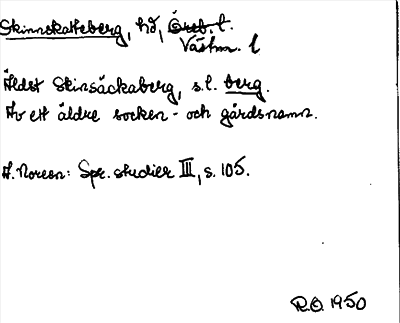 Skinnskatteberg, hd, Öreb. l.
Västm. l
Äldst Skinsäckaberg, s.l. berg.
Av ett äldre socken- och gårdsnamn.
A. Noreen: Spr. studier III, s. 105.
R.O. 1950